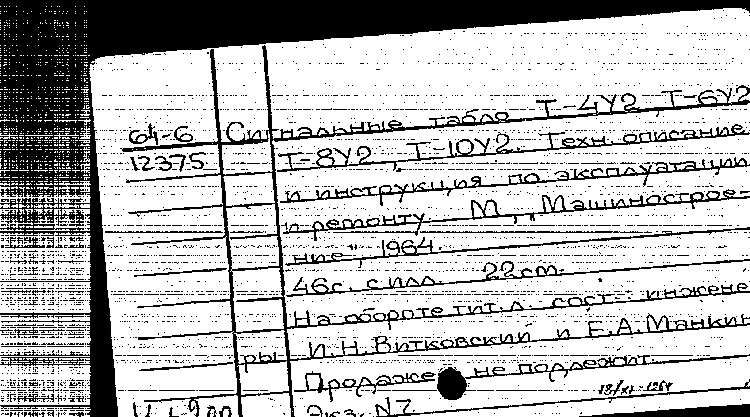 64-6 Сигнальные табло Т-4У2, Т-6У2
12375 Т-8У2, Т-10У2. Техн. описание
и инструкция по эксплуатации
и ремонту М., „Машинострое-
ние", 1964.
46с. с илл. 22cm.
На обороте тит. л. сост.: инжене
ры И.Н. Витковский и Е.А. Манкин
Продаже не подлежит.
18/XI-1964
Экз. N7